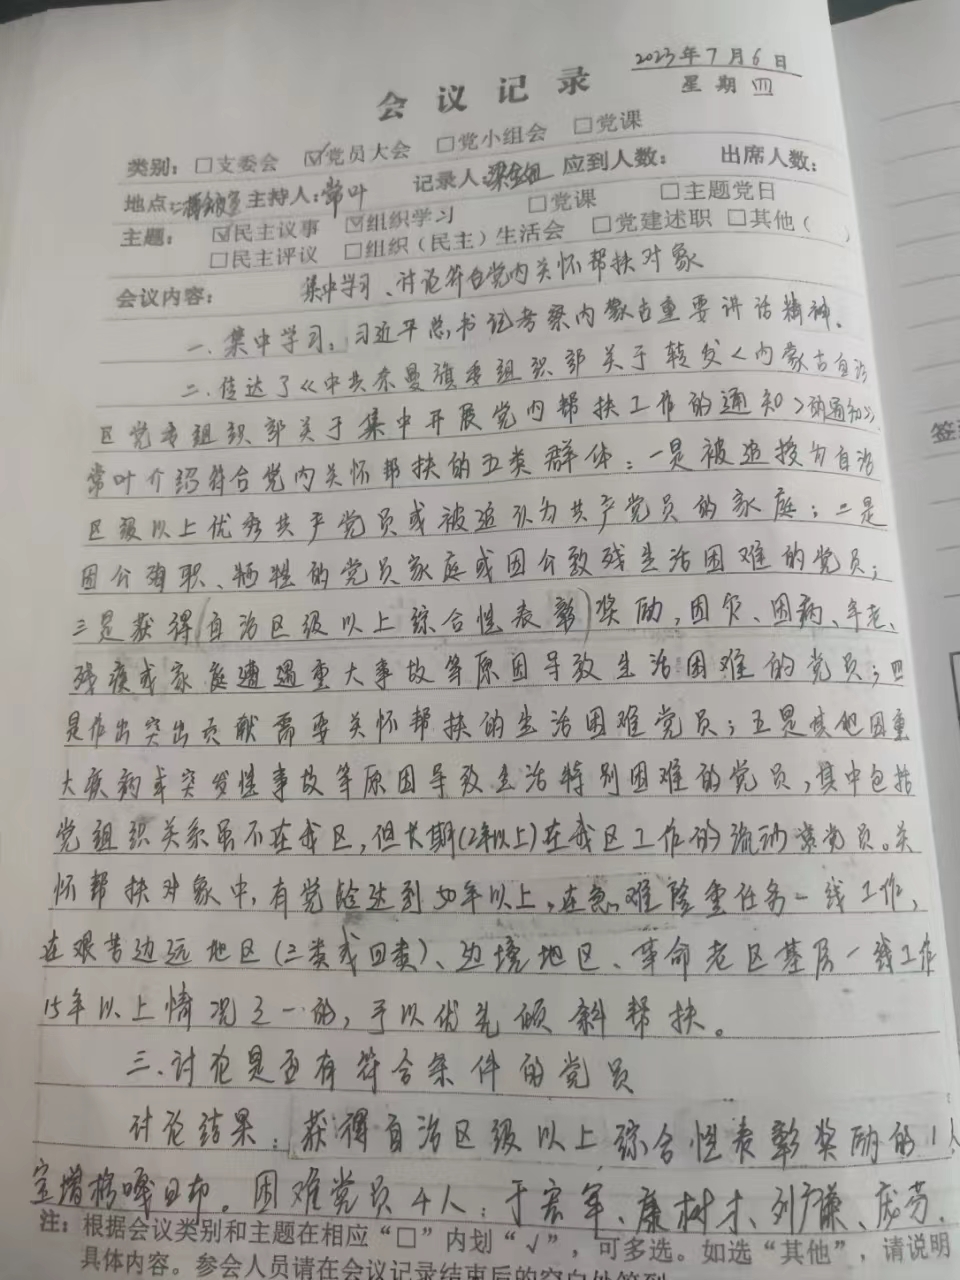 2023年7月6日
会议记录 星期四
类别：□支委会 ☑党员大会 □党小组会 □党课
地点： 主持人：常叶 记录人： 应到人数： 出席人数：
主题：☑民主议事 ☑组织学习 □党课 □主题党日
□民主评议 □组织（民主）生活会 □党建述职 □其他（ ）
会议内容： 集中学习、讨论符合党内关怀帮扶对象
一、集中学习：习近平总书记考察内蒙古重要讲话精神。
二、传达了《中共奈曼旗委组织部关于转发<内蒙古自治
区党委组织部关于集中开展党内帮扶工作的通知>的通知》，
常叶介绍符合党内关怀帮扶的五类群体：一是被追授为自治
区级以上优秀共产党员或被追认为共产党员的家庭；二是
因公殉职、牺牲的党员家庭或因公致残生活困难的党员；
三是获得(自治区级以上综合性表彰)奖励，因灾、因病、年老、
残疾或家庭遭遇重大事故等原因导致生活困难的党员；四
是作出突出贡献需要关怀帮扶的生活困难党员；五是其他因重
大疾病或突发性事故等原因导致生活特别困难的党员，其中包括
党组织关系虽不在我区，但长期(2年以上)在我区工作的流动党员。关
怀帮扶对象中，有党龄达到50年以上，在急难险重任务一线工作，
在艰苦边远地区(三类或四类)、边境地区、革命老区基层一线工作
15年以上情况之一的，予以优先倾斜帮扶。
三、讨论是否有符合条件的党员
讨论结果：获得自治区级以上综合性表彰奖励的1人
宝增格嘎日布。困难党员4人：于宏军、康树木、刘广谦、庞芳，
注：根据会议类别和主题在相应“□”内划“√”，可多选。如选“其他”，请说明
具体内容。参会人员请在会议记录结束后的空白处签到